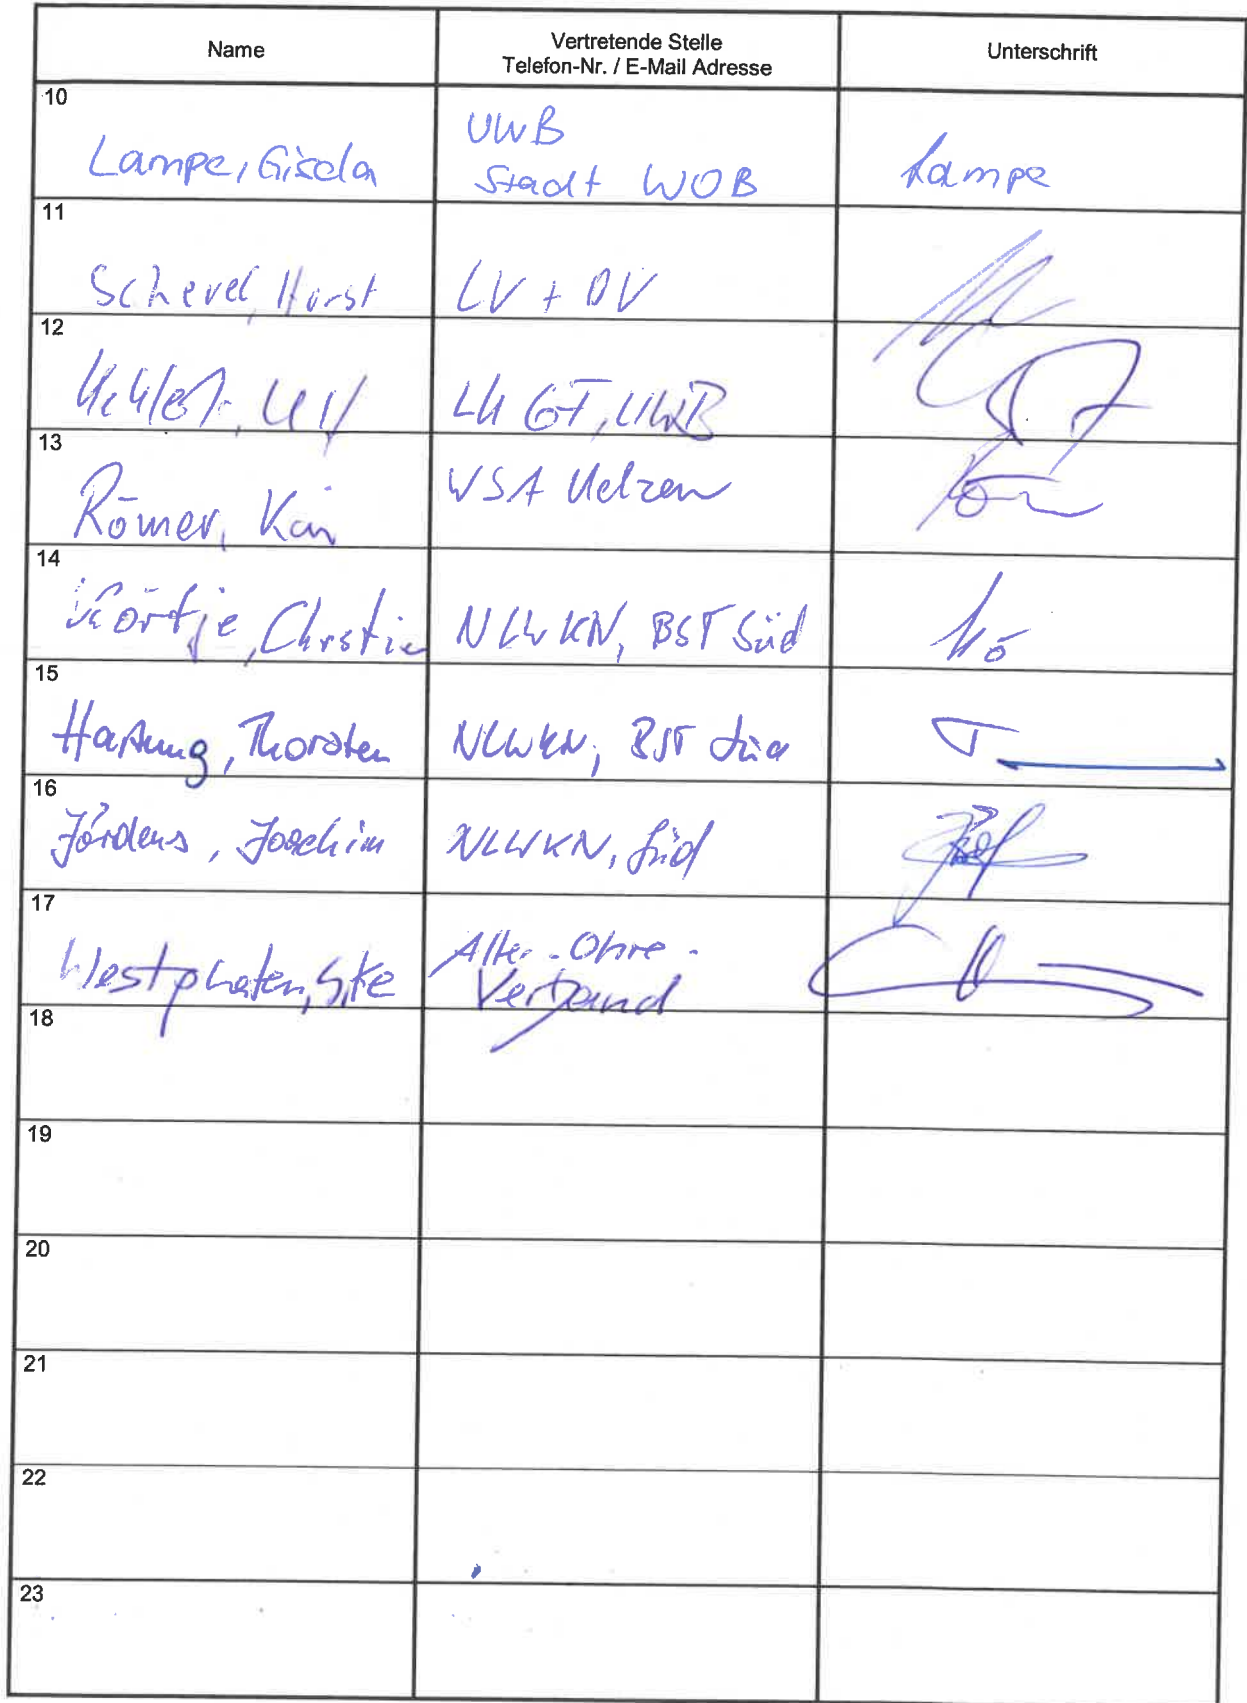 Name
Vertretende Stelle
Telefon-Nr. / E-Mail Adresse
Unterschrift
10
Lampe, Gisela
UWB
Stadt WOB
Lampe
11
Horst
LV + DV
12
LK GF, UWB
13
Römer, Kai
WSA Uelzen
14
Körtje,
NLWKN, BST Süd
Kö
15
Hartung, Thorsten
NLWKN, BST Süd
16
Jördens, Joachim
NLWKN, Süd
17
Westphalen, Silke
Aller-Ohre-
Verband
18
19
20
21
22
23